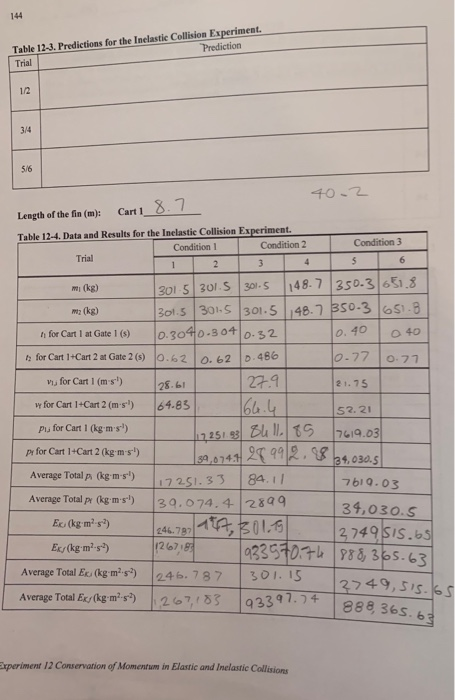 144
Table 12-3. Predictions for the Inelastic Collision Experiment.
Trial Prediction
1/2
3/4
5/6
40-2
Length of the fin (m): Cart 1 8.7
Table 12-4. Data and Results for the Inelastic Collision Experiment.
Trial Condition 1 Condition 2 Condition 3
1 2 3 4 5 6
m₁ (kg) 301.5 301.5 301.5 148.7 350.3 651.8
m₂ (kg) 301.5 301.5 301.5 148.7 350.3 651.8
t₁ for Cart 1 at Gate 1 (s) 0.304 0.304 0.32 0.40 0.40
t₂ for Cart 1+Cart 2 at Gate 2 (s) 0.62 0.62 0.486 0.77 0.77
v₁ᵢ for Cart 1 (m·s⁻¹) 28.61 27.9 21.75
vf for Cart 1+Cart 2 (m·s⁻¹) 64.83 64.4 52.21
p₁ᵢ for Cart 1 (kg·m·s⁻¹) 17251.83 8411.85 7619.03
pf for Cart 1+Cart 2 (kg·m·s⁻¹) 39,074.4 28992.88 34,030.5
Average Total pᵢ (kg·m·s⁻¹) 17251.33 84.11 7619.03
Average Total pf (kg·m·s⁻¹) 39.074.4 2899 34,030.5
Eₖᵢ (kg·m²·s⁻²) 246.787 301.5 2,749,515.65
Eₖf (kg·m²·s⁻²) 1267,183 933570.74 888,365.63
Average Total Eₖᵢ (kg·m²·s⁻²) 246.787 301.15 2749,515.65
Average Total Eₖf (kg·m²·s⁻²) 1267,183 93397.74 888,365.63
Experiment 12 Conservation of Momentum in Elastic and Inelastic Collisions